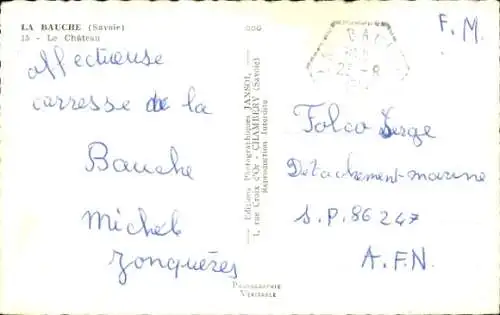 LA BAUCHE (Savoie)
15 - Le Château
affectueuse
carresse de la
Bauche
Michel
Jonquères
Editions Photographiques JANSOL,
1, rue Croix d'Or - CHAMBÉRY (Savoie)
Reproduction interdite
PHOTOGRAPHIE
VÉRITABLE
25-8
F.M.
Folco Serge
Detachement-marine
S.P. 86 247
A.F.N.